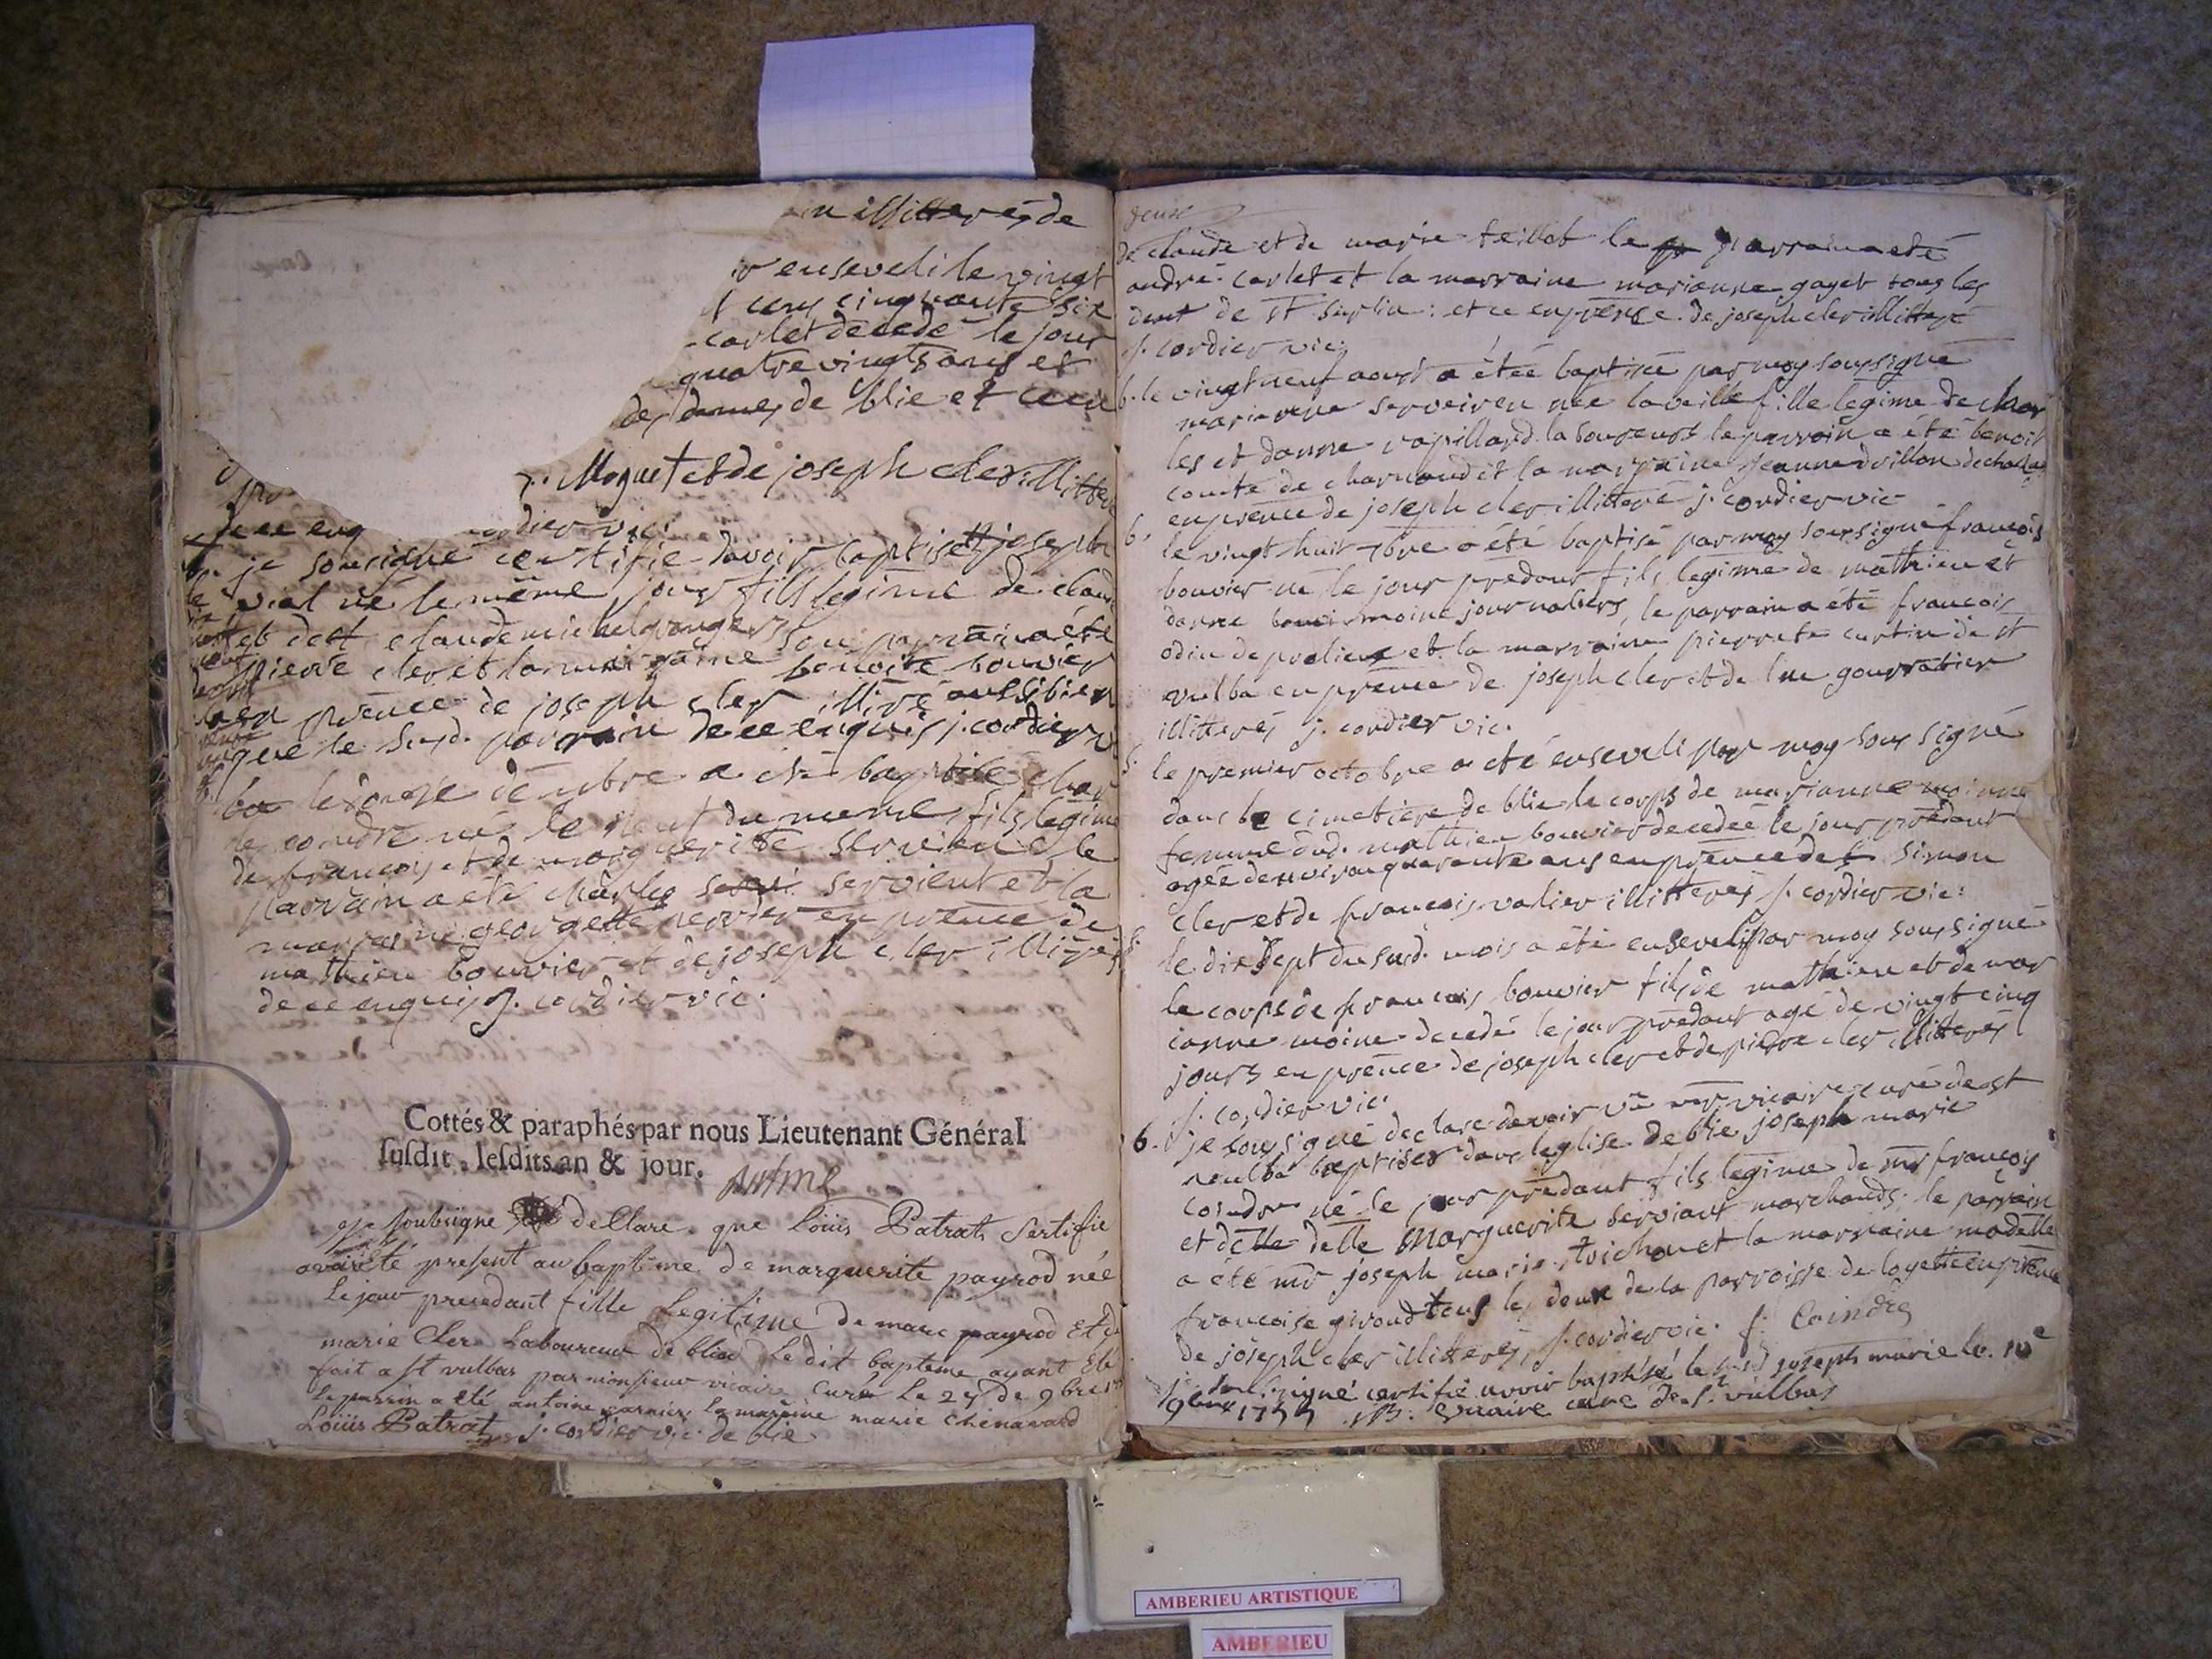 illitteres de
enseveli le vingt
cens cinquante six
carlet decedé le jour
quatre vingts ans et
des dames de blie et ce en
Moguet et de joseph cler illitteré
de ce enq cordier vic:
je sousigné certifie davoir baptisé joseph
vial né le même jour fils legime de claude
et claudemichel
pierre cler et la marraine benoite bouvier
en prēnce de joseph cler illiré aussi bien
que le susd. parrain de ce enquis j. cordier v
le onze dēmbre a été baptisé char
le coindre né le neuf du meme fils legime
de françois et de marguerite servient le
parrain a été charles servient et la
marraine georgette perrder en prēnce de
mathieu bouvier et de joseph cler illirés
de ce enquis J. cordier vic.
Cottés & paraphés par nous Lieutenant Général
susdit, lesdits an & jour.
je soubsigne dellare que Loüis Patrat Sertifie
avoir été present au baptême de marguerite payrod née
Le jour precedant fille Legitime de marc payrod Et de
marie Cler Laboureur de blie Le dit baptême ayant Eté
fait a st vulbas par monsieur vicaire Curé Le 27 de 9bre
Le parrin a Eté antoine garnier La marrine marie Chenavard
Loüis Patrat j. cordier vic. de blie
de claude et de marie teillot le parrain a eté
andré carlet et la marraine marianne gayet tous les
deux de St Surlin: et ce en prēnse de joseph cler illitteré
j. cordier vic:
b. le vingt neuf aoust a étée baptisée par moy sousigné
marianne serveiren née la veille fille legime de char
les et danne rapillard laboureurs le parrain a été benoit
comte de charnoud et la marraine jeanne drillon de
en prence de joseph cler illitteré j. cordier vic
b. le vingt huit 7bre a été baptisé par moy sousigné françois
bouvier né le jour prēdant fils legime de mathieu et
danne moine journaliers, le parrain a été francois
odin de prolieu et la marraine pierrete curtin de st
vulba en prēnce de joseph cler et de line gourratier
illitterés j. cordier vic.
S. le premier octobre a été enseveli par moy sous signé
dans le cimetière de blie le corps de marianne moinne
femme dud. mathieu bouvier decedée le jour prēdant
agée denviron quarante ans en prēnce de simon
cler et de francois valier illitterés j. cordier vic:
S. le dix sept du susd. mois a été enseveli par moy sous signé
le corps de francois bouvier fils de mathieu et de mar
ianne moine decedé le jour prēdant agé de vingt cinq
jours en prēnce de joseph cler et de pierre cler illitterés
j. cordier vic.
b. je sousigné declare davoir vû mr vicaire curé de st
vulba baptiser dans leglise de blie joseph marie
coindre né le jour prēdant fils legime de mr françois
et delle marguerite serviant marchands le parrain
a été mr joseph marie trichon et la marraine madelle
francoise giroud tous les deux de la parroisse de loyette en prēnce
de joseph cler illitterés, j. cordier vic. f. Coindre
je sousigné certifie avoir baptisé le susd joseph marie le 10e
9bre vicaire curé de St vulbas
AMBERIEU ARTISTIQUE
AMBERIEU